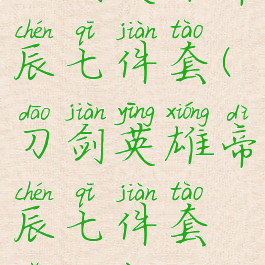 chén qī jiàn tào
辰七件套(
dāo jiàn yīng xióng dì
刀剑英雄帝
chén qī jiàn tào
辰七件套